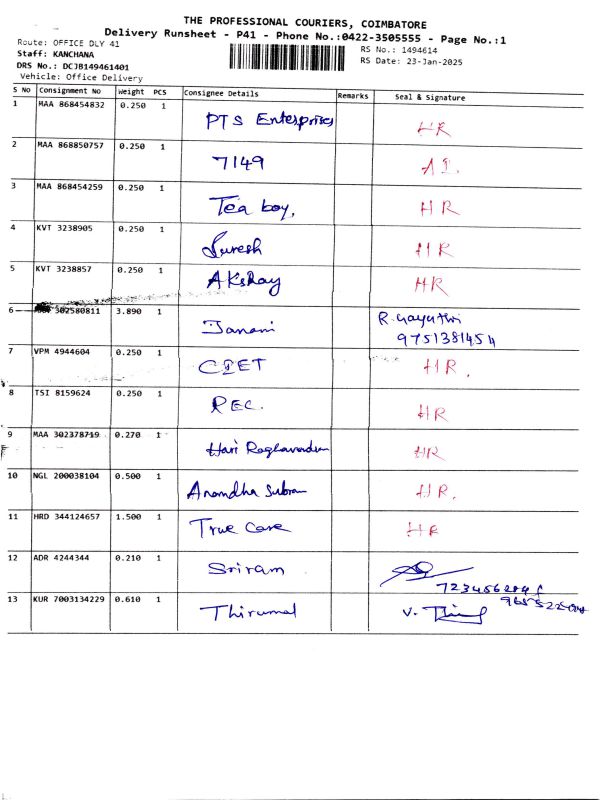 THE PROFESSIONAL COURIERS, COIMBATORE
Delivery Runsheet - P41 - Phone No.:0422-3505555 - Page No.:1
Route: OFFICE DLY 41
RS No.: 1494614
Staff: KANCHANA
RS Date: 23-Jan-2025
DRS No.: DCJB149461401
Vehicle: Office Delivery
S No Consignment No Weight PCS Consignee Details Remarks Seal & Signature
1 MAA 868454832 0.250 1 PTS Enterprises HR
2 MAA 868850757 0.250 1 7149
3 MAA 868454259 0.250 1 Tea boy, HR
4 KVT 3238905 0.250 1 Suresh HR
5 KVT 3238857 0.250 1 Akshay HR
6 302580811 3.890 1 Janani R. Gayathri
9751381454
7 VPM 4944604 0.250 1 HR.
8 TSI 8159624 0.250 1 REC. HR
9 MAA 302378719 0.270 1 Hari HR
10 NGL 200038104 0.500 1 HR.
11 HRD 344124657 1.500 1 True Care HR
12 ADR 4244344 0.210 1 Sriram
13 KUR 7003134229 0.610 1 Thirumal V.